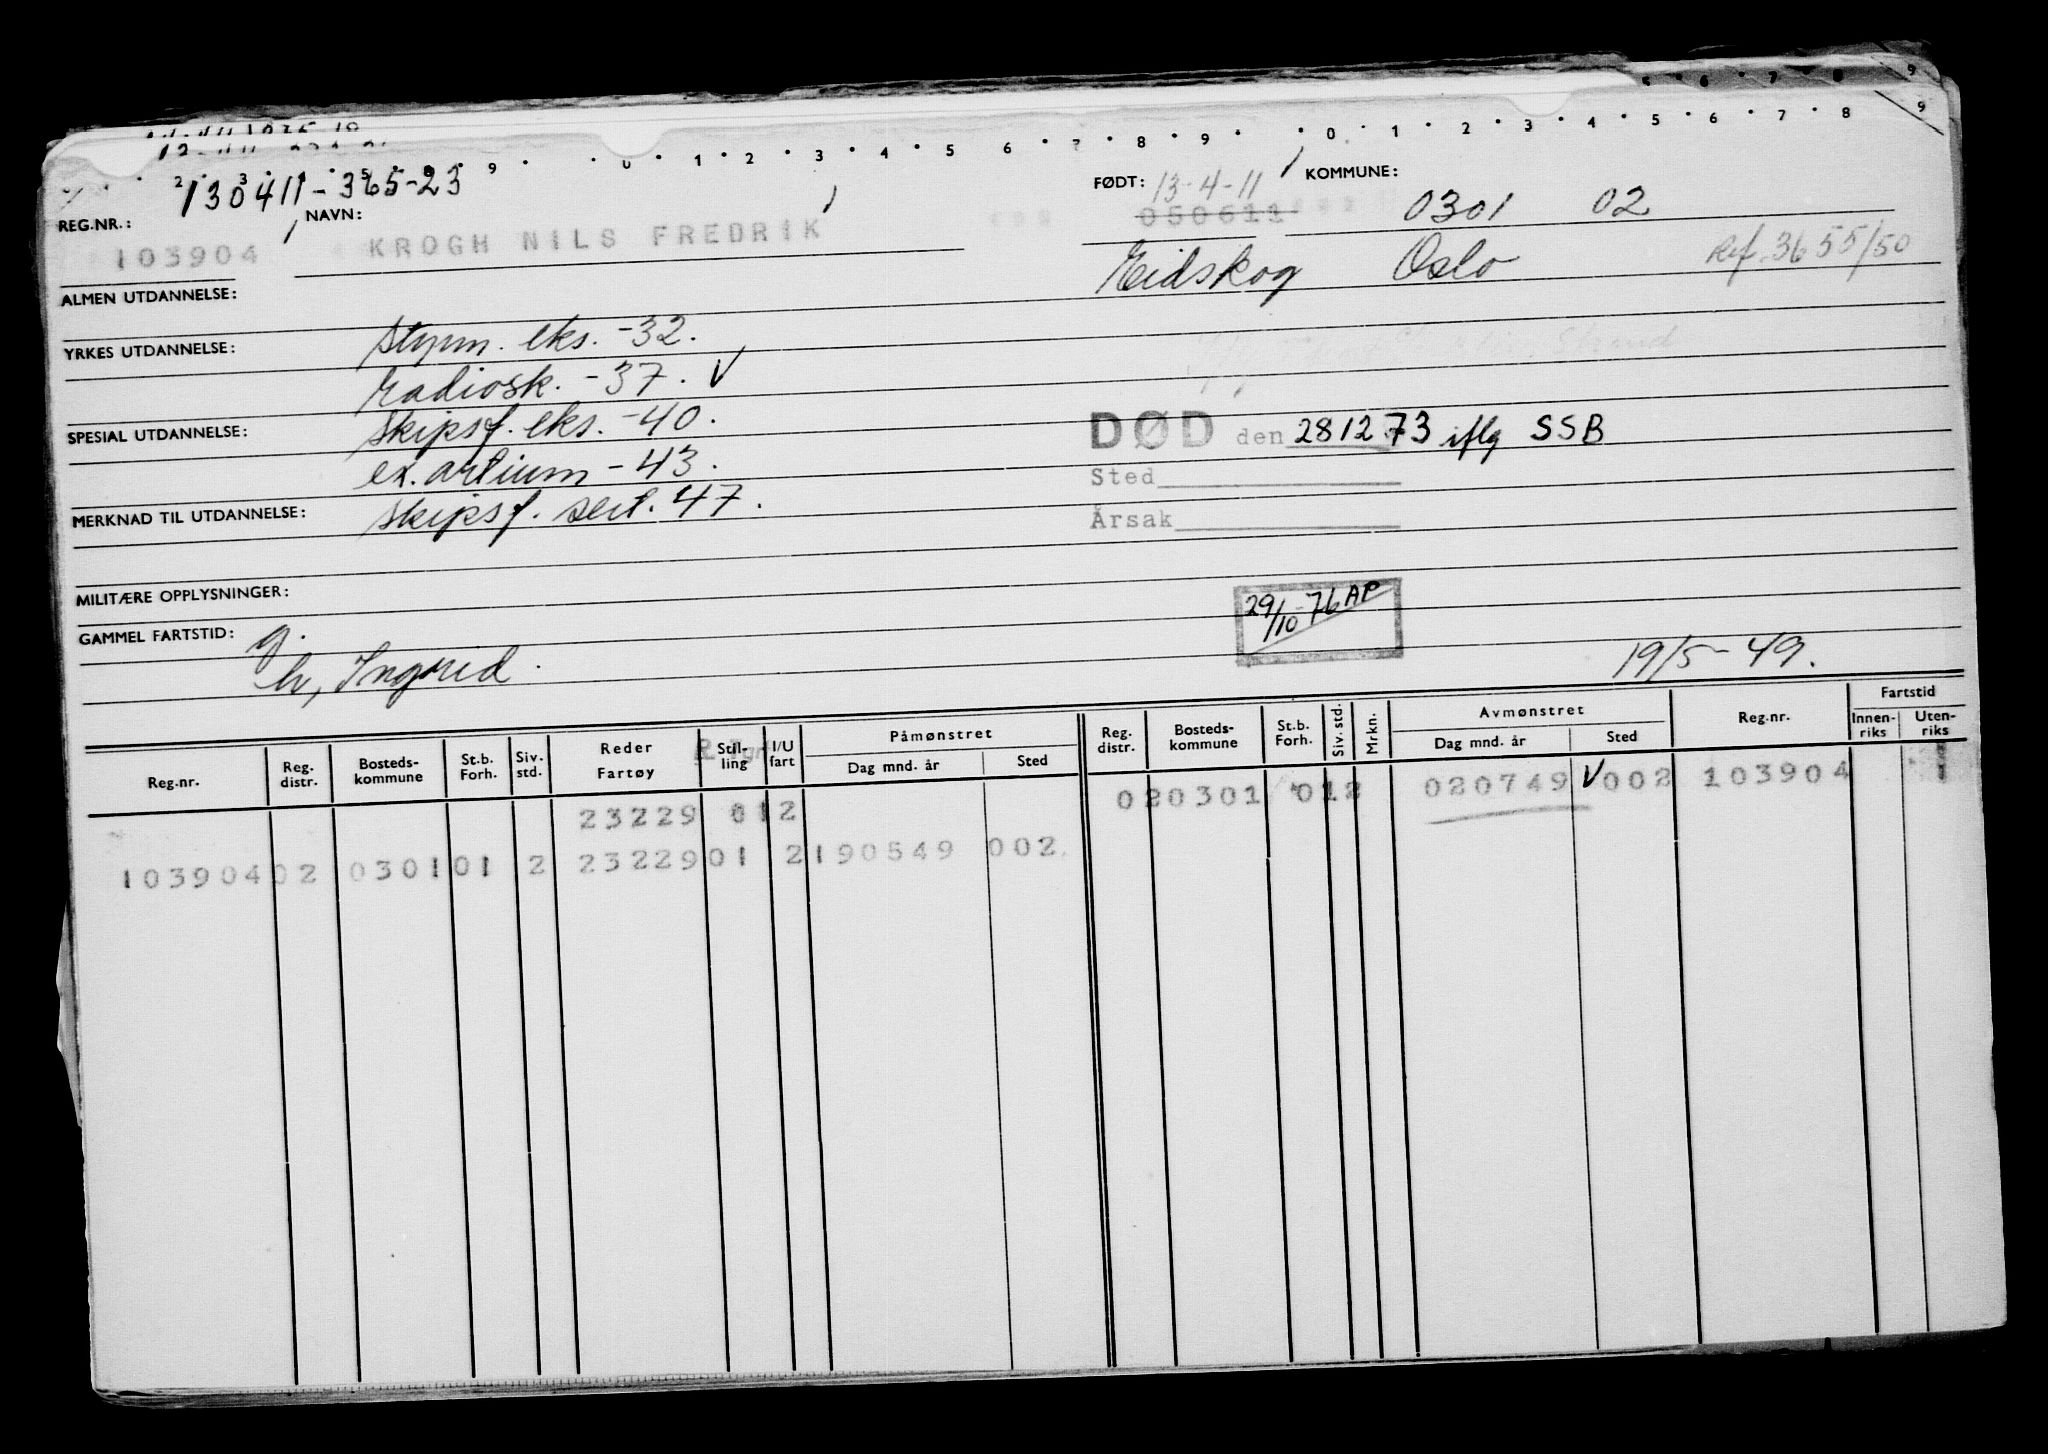 5 6 7 8 9
0 1 2 3 4 5 6 7 8 9
9 0 1 2 3 4 5 6 7 8 9
130411-365-23
REG.NR.: NAVN: FØDT: 13-4-11 KOMMUNE:
050611 0301 02
103904 KROGH NILS FREDRIK
Eidskog Oslo Ref. 3655/50
ALMEN UTDANNELSE:
YRKES UTDANNELSE: styrm. eks. -32.
radiosk. -37. V
SPESIAL UTDANNELSE: skipsf. eks. -40.
DØD den 281273 iflg SSB
ex. artium -43.
Sted
MERKNAD TIL UTDANNELSE: skipsf. sert. 47.
Årsak
MILITÆRE OPPLYSNINGER:
29/10-76 AP
GAMMEL FARTSTID: g.
h, Ingrid.
19/5-49.
Reg.nr. Reg. distr. Bosteds-kommune St.b. Forh. Siv. std. Reder Fartøy Still-ling I/U fart Påmønstret Dag mnd. år Sted Reg. distr. Bosteds-kommune St.b. Forh. Siv. std. Mrkn. Avmønstret Dag mnd. år Sted Reg.nr. Fartstid Innen-riks Uten-riks
23229 012 020301 012 020749 V 002 103904
103904 02 0301 01 2 23229 01 2 190549 002